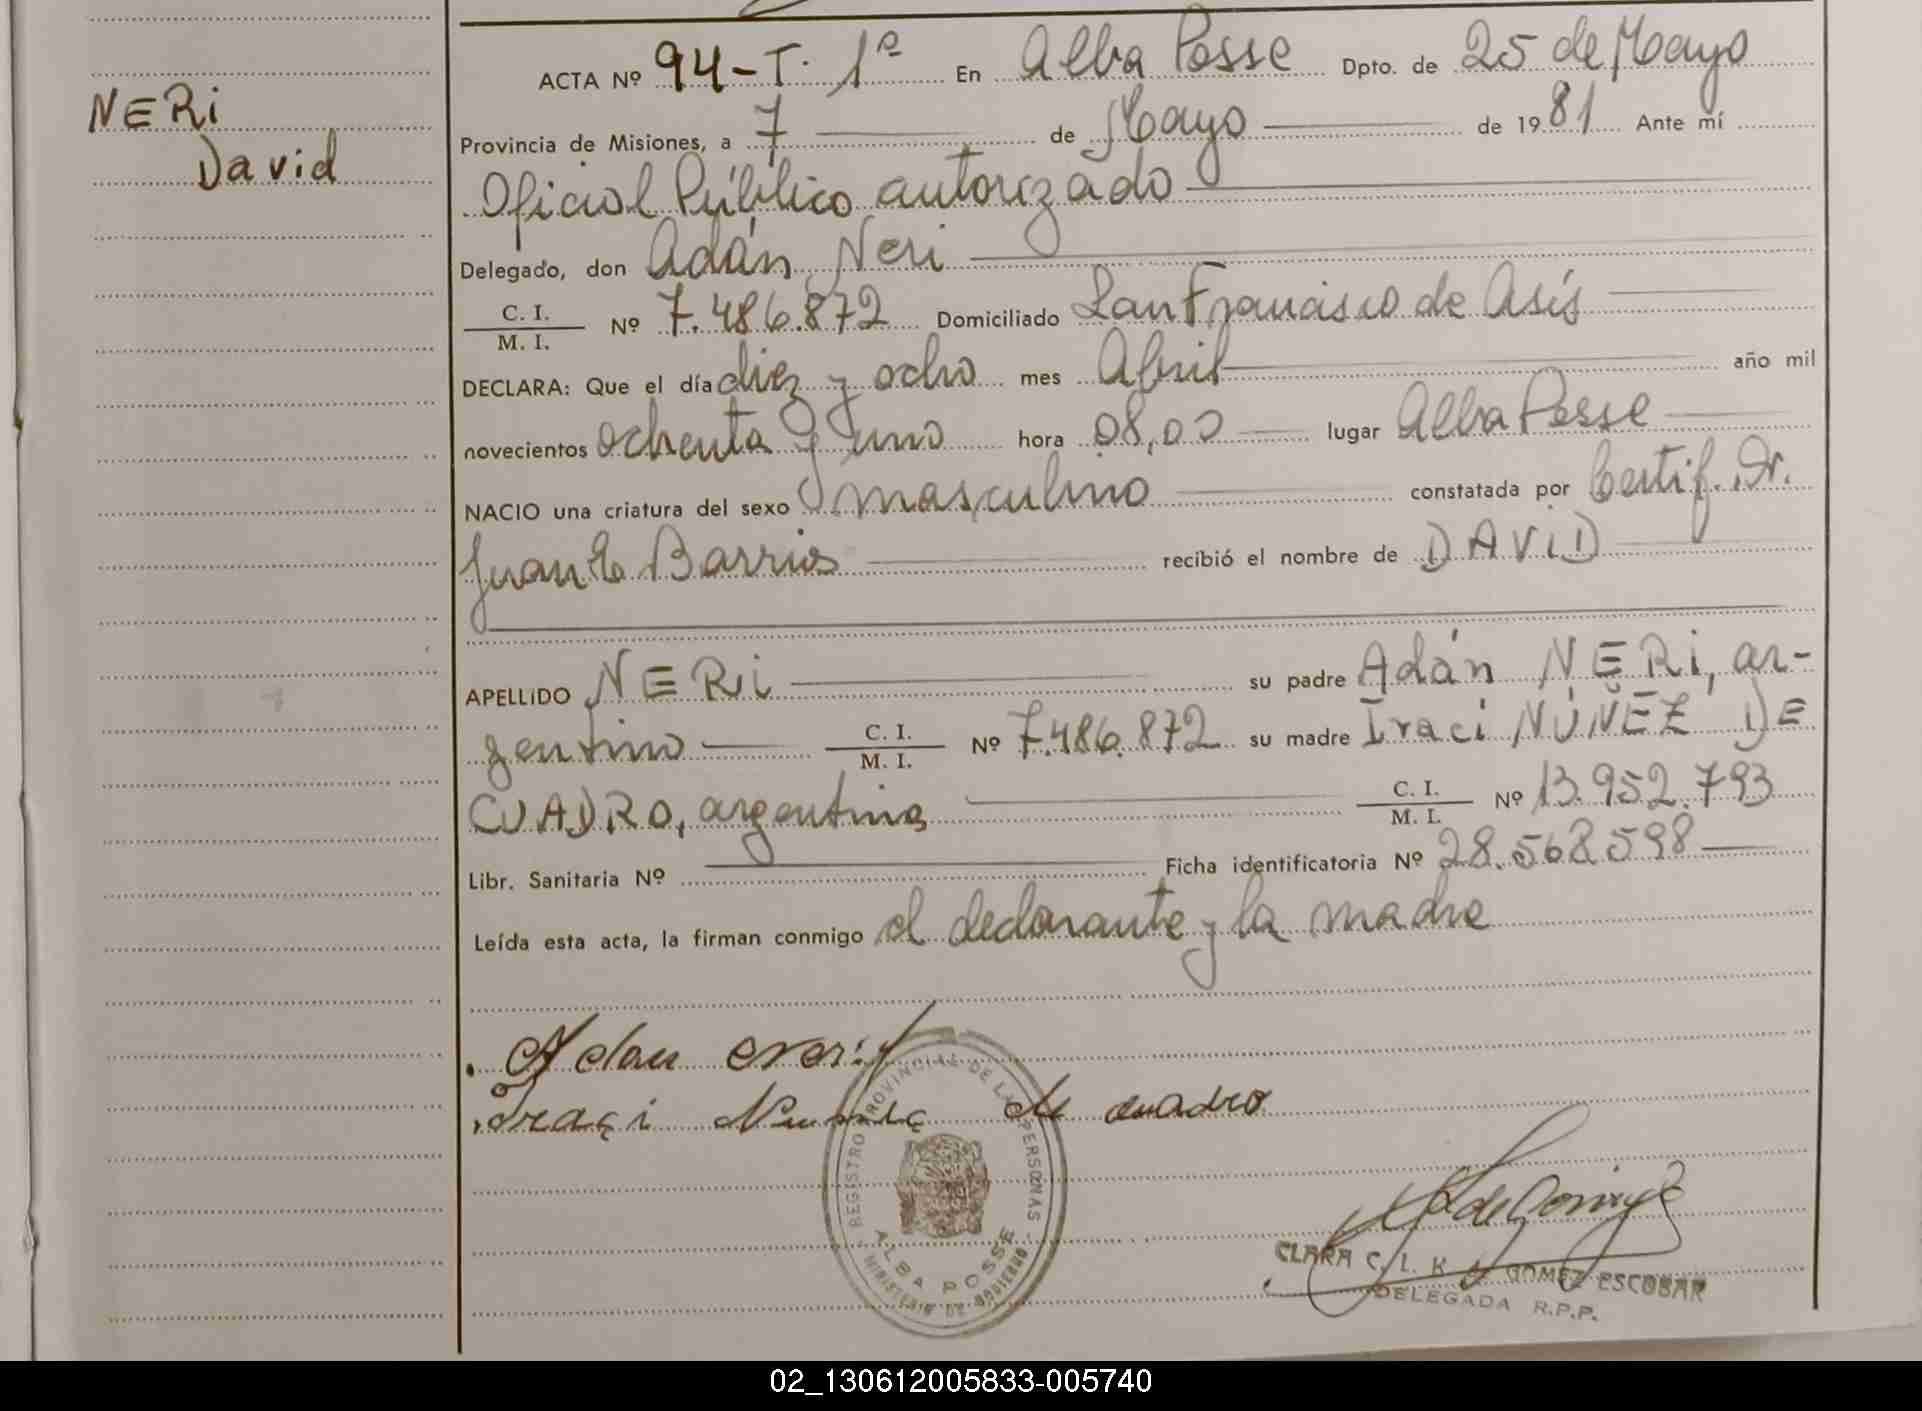 NERi
David
ACTA Nº 94-T. 1ª En Alba Posse Dpto. de 25 de Mayo
Provincia de Misiones, a 7 de Mayo de 1981 Ante mí
Oficial Público autorizado
Delegado, don Adán Neri
C. I.
M. I. Nº 7.486.872 Domiciliado San Francisco de Asís
DECLARA: Que el día diez y ocho mes Abril año mil
novecientos ochenta y uno hora 08,00 lugar Alba Posse
NACIO una criatura del sexo masculino constatada por Certif. Dr.
Juan Barrios recibió el nombre de DAViD
APELLIDO NERi su padre Adán NERi, ar-
gentino C. I. M. I. Nº 7.486.872 su madre Iraci NÚÑEZ DE
CUADRO, argentina C. I. M. I. Nº 13.952.793
Libr. Sanitaria Nº Ficha identificatoria Nº 28.568.598
Leída esta acta, la firman conmigo el declarante y la madre
Adan neri
iraçi Nunez de cuadro
REGISTRO PROVINCIAL DE LAS PERSONAS
ALBA POSSE
MINISTERIO DE GOBIERNO
CLARA C. L. K de GOMEZ ESCOBAR
DELEGADA R.P.P.
02_130612005833-005740